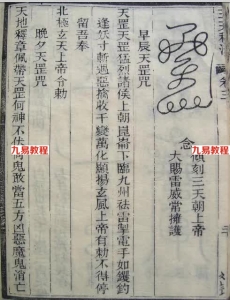 卷三
念
頃刻三天朝上帝
大賜雷威常擁護
早辰天罡咒
天罡天罡猛烈諸侯上朝崑崙下臨九州 雷掣電手如 鈎
逢妖寸斬遇惡擒收千變萬化顯揚玄風上帝有勅不得停
留吾奉
北極玄天上帝令勅
晚夕天罡咒
天地 章佩帶天罡何神不伏何鬼敢當五方凶惡魔鬼消亡
九易教程
九易教程